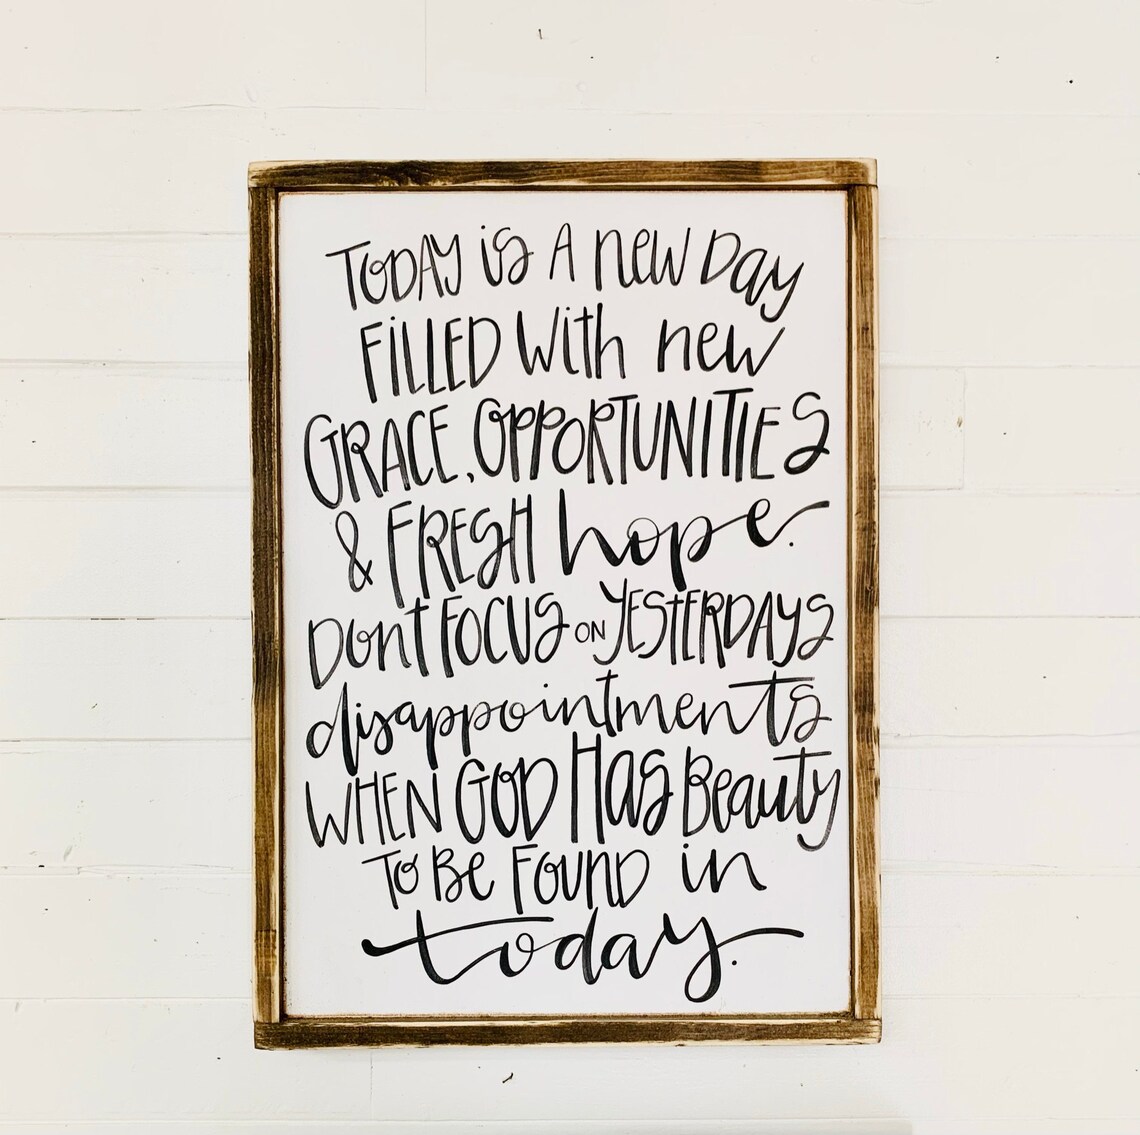 TODAY is A new Day
FiLLED With new
GRACE, OPPORTUNITIES
& FRESH hope.
Dont FOCUS ON YESTERDAYS
disappointments
WHEN GOD HAS Beauty
TO Be FOUND in
today.